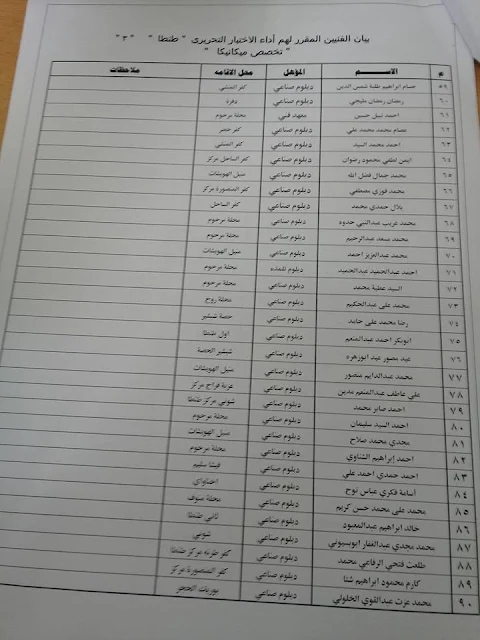 بيان الفنيين المقرر لهم أداء الاختبار التحريرى " طنطا " " ٣ "
" تخصص ميكانيكا "
م الاســـم المؤهل محل الاقامه ملاحظات
٥٩ حسام ابراهيم طلبة شمس الدين دبلوم صناعي كفر
٦٠ رمضان رمضان مليجي دبلوم صناعي دفرة
٦١ احمد نبيل حسين معهد فني محلة مرحوم
٦٢ عصام محمد محمد على دبلوم صناعي كفر خضر
٦٣ احمد محمد السيد دبلوم صناعي كفر
٦٤ ايمن لطفي محمود رضوان دبلوم صناعي كفر الساحل مركز
٦٥ محمد جمال فضل الله دبلوم صناعي منيل الهويشات
٦٦ محمد فوزي مصطفي دبلوم صناعي كفر المنصورة مركز
٦٧ بلال حمدي محمد دبلوم صناعي كفر الساحل
٦٨ محمد غريب عبدالنبي دبلوم صناعي محلة مرحوم
٦٩ محمد سعد عبدالرحيم دبلوم صناعي محلة مرحوم
٧٠ محمد عبدالعزيز احمد دبلوم صناعي منيل الهويشات
٧١ احمد عبدالحميد عبدالحميد دبلوم تلمذه محلة مرحوم
٧٢ السيد عطية محمد دبلوم صناعي محلة مرحوم
٧٣ محمد على عبدالحكيم دبلوم صناعي محلة روح
٧٤ رضا محمد على حامد دبلوم صناعي حصة شبشير
٧٥ ابوبكر احمد عبدالمنعم دبلوم صناعي اول طنطا
٧٦ عيد منصور عيد ابوزهره دبلوم صناعي شبشير الحصة
٧٧ محمد عبدالدايم منصور دبلوم صناعي منيل الهويشات
٧٨ على عاطف عبدالمنعم مدين دبلوم صناعي عزبة فراج مركز
٧٩ احمد صابر محمد دبلوم صناعي شوني مركز طنطا
٨٠ احمد السيد سليمان دبلوم صناعي محلة مرحوم
٨١ مجدي محمد صلاح دبلوم صناعي منيل الهويشات
٨٢ احمد إبراهيم الشناوي دبلوم صناعي محلة مرحوم
٨٣ احمد حمدي احمد على دبلوم صناعي فيشا سليم
٨٤ أسامة فكري عباس نوح دبلوم صناعي اخناواي
٨٥ محمد على محمد حسن كريم دبلوم صناعي محلة منوف
٨٦ خالد ابراهيم عبدالمعبود دبلوم صناعي ثاني طنطا
٨٧ محمد مجدي عبدالغفار ابوبسيوني دبلوم صناعي شوني
٨٨ طلعت فتحي الرفاعي محمد دبلوم صناعي كفر مركز طنطا
٨٩ كارم محمود ابراهيم شتا دبلوم صناعي كفر المنصورة مركز
٩٠ محمد عزت عبدالقوي الخلولي دبلوم صناعي